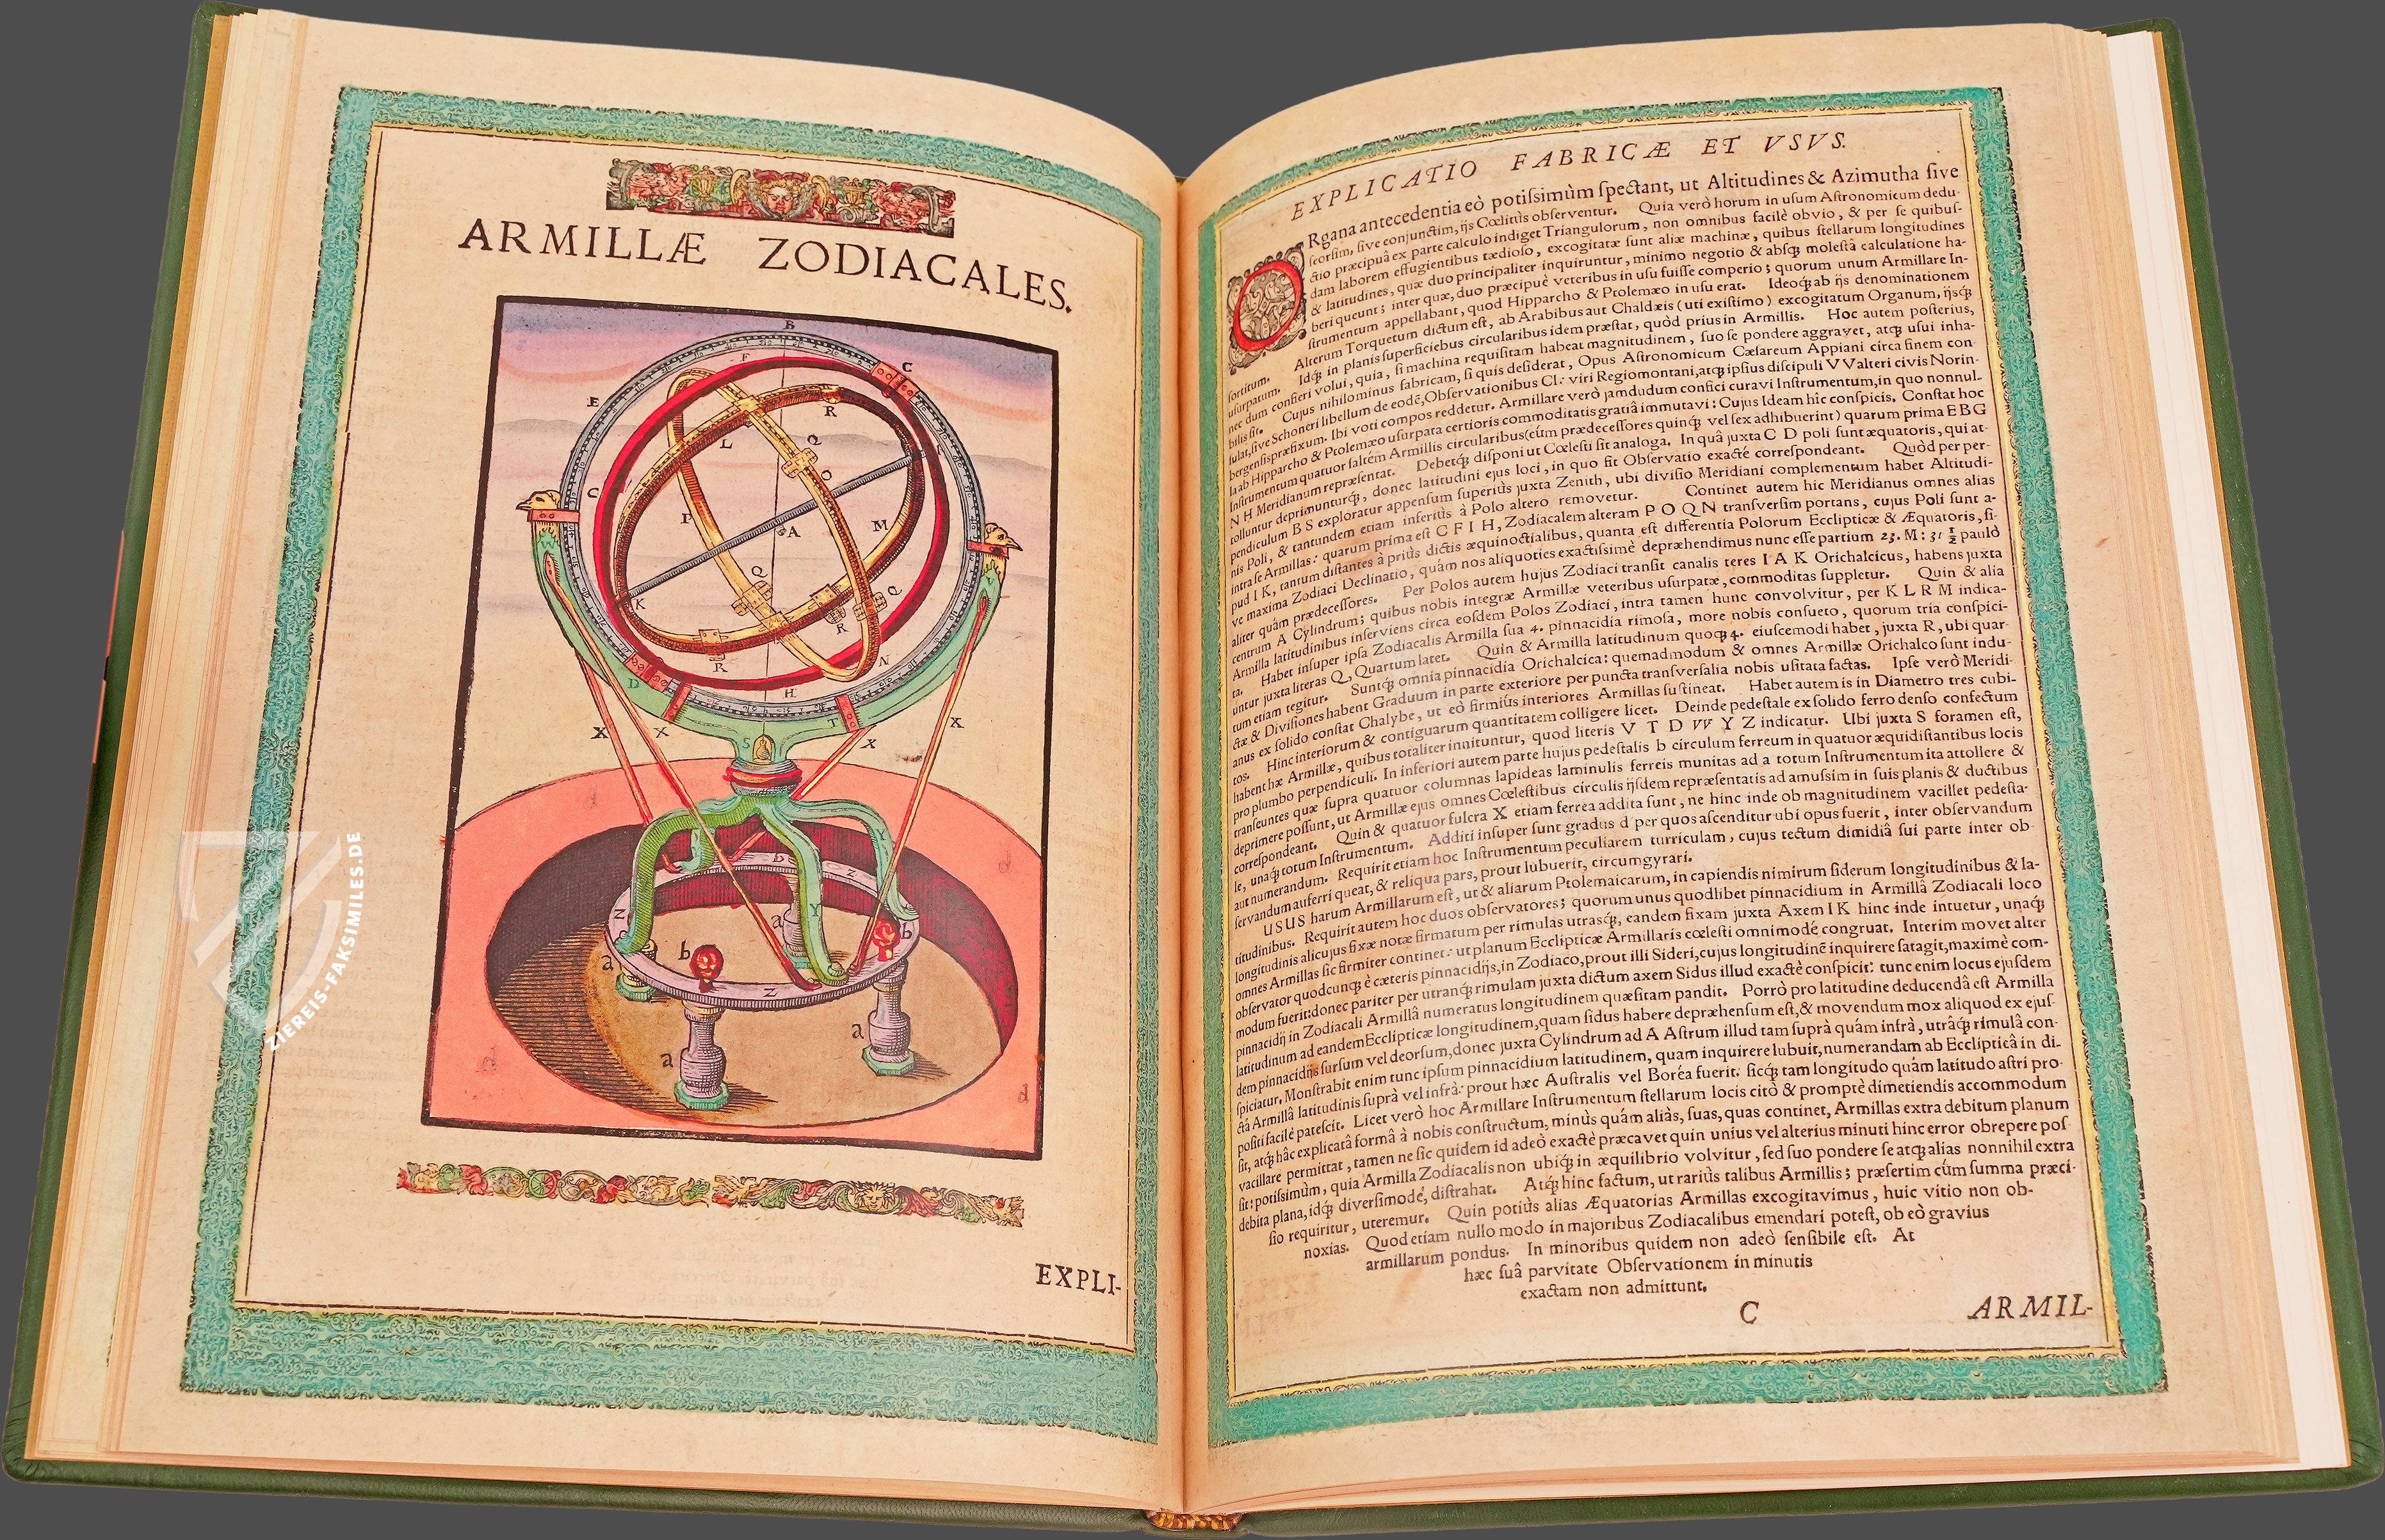 ARMILLÆ ZODIACALES.
EXPLI-
EXPLICATIO FABRICÆ ET VSVS.
ORgana antecedentia eò potiſsimùm ſpectant, ut Altitudines & Azimutha ſive
ſeorſim, ſive conjunctim, ijs Cœlitùs obſerventur. Quia verò horum in uſum Aſtronomicum dedu-
ctio præcipuâ ex parte calculo indiget Triangulorum, non omnibus facilè obvio, & per ſe quibuſ-
dam laborem effugientibus tædioſo, excogitatæ ſunt aliæ machinæ, quibus ſtellarum longitudines
& latitudines, quæ duo principaliter inquiruntur, minimo negotio & abſq; moleſtâ calculatione ha-
beri queunt; inter quæ, duo præcipuè veteribus in uſu fuiſſe comperio; quorum unum Armillare In-
ſtrumentum appellabant, quod Hipparcho & Ptolemæo in uſu erat. Ideoq; ab ijs denominationem
ſortitum. Alterum Torquetum dictum eſt, ab Arabibus aut Chaldæis (uti exiſtimo) excogitatum Organum, ijſq;
uſurpatum. Idq; in planis ſuperficiebus circularibus idem præſtat, quòd prius in Armillis. Hoc autem poſterius,
nec dum confieri volui, quia, ſi machina requiſitam habeat magnitudinem, ſuo ſe pondere aggravet, atq; uſui inha-
bilis ſit. Cujus nihilominus fabricam, ſi quis deſiderat, Opus Aſtronomicum Cæſareum Appiani circa finem con
ſulat, ſive Schoneri libellum de eodē, Obſervationibus Cl: viri Regiomontani, atq; ipſius diſcipuli VValteri civis Norin-
bergenſis præfixum. Ibi voti compos reddetur. Armillare verò jamdudum confici curavi Inſtrumentum, in quo nonnul-
la ab Hipparcho & Ptolemæo uſurpata certioris commoditatis gratiâ immutavi: Cujus Ideam hîc conſpicis. Conſtat hoc
Inſtrumentum quatuor ſaltém Armillis circularibus (cùm prædeceſſores quinq; vel ſex adhibuerint) quarum prima E B G
N H Meridianum repræſentat. Debetq; diſponi ut Cœleſti ſit analoga. In quâ juxta C D poli ſunt æquatoris, qui at-
tolluntur deprimunturq;, donec latitudini ejus loci, in quo fit Obſervatio exacté correſpondeant. Quòd per per-
pendiculum B S exploratur appenſum ſuperiùs juxta Zenith, ubi diviſio Meridiani complementum habet Altitudi-
nis Poli, & tantundem etiam inferiùs à Polo altero removetur. Continet autem hic Meridianus omnes alias
intra ſe Armillas: quarum prima eſt C F I H, Zodiacalem alteram P O Q N tranſverſim portans, cujus Poli ſunt a-
pud I K, tantum diſtantes à priùs dictis æquinoctialibus, quanta eſt differentia Polorum Ecclipticæ & Æquatoris, ſi-
ve maxima Zodiaci Declinatio, quàm nos aliquoties exactiſsimè depræhendimus nunc eſſe partium 23. M: 31 ½ paulò
aliter quàm prædeceſſores. Per Polos autem hujus Zodiaci tranſit canalis teres I A K Orichalcicus, habens juxta
centrum A Cylindrum; quibus nobis integræ Armillæ veteribus uſurpatæ, commoditas ſuppletur. Quin & alia
Armilla latitudinibus inſerviens circa eoſdem Polos Zodiaci, intra tamen hunc convolvitur, per K L R M indica-
ta. Habet inſuper ipſa Zodiacalis Armilla ſua 4. pinnacidia rimoſa, more nobis conſueto, quorum tria conſpici-
untur juxta literas Q, Quartum latet. Quin & Armilla latitudinum quoq; 4. eiuſcemodi habet, juxta R, ubi quar-
tum etiam tegitur. Suntq; omnia pinnacidia Orichalcica: quemadmodum & omnes Armillæ Orichalco ſunt indu-
ctæ & Diviſiones habent Graduum in parte exteriore per puncta tranſverſalia nobis uſitata factas. Ipſe verò Meridi-
anus ex ſolido conſtat Chalybe, ut eò firmiùs interiores Armillas ſuſtineat. Habet autem is in Diametro tres cubi-
tos. Hinc interiorum & contiguarum quantitatem colligere licet. Deinde pedeſtale ex ſolido ferro denſo confectum
habent hæ Armillæ, quibus totaliter innituntur, quod literis V T D VV Y Z indicatur. Ubi juxta S foramen eſt,
pro plumbo perpendiculi. In inferiori autem parte hujus pedeſtalis b circulum ferreum in quatuor æquidiſtantibus locis
tranſeuntes quæ ſupra quatuor columnas lapideas laminulis ferreis munitas ad a totum Inſtrumentum ita attollere &
deprimere poſſunt, ut Armillæ ejus omnes Cœleſtibus circulis ijſdem repræſentatis ad amuſsim in ſuis planis & ductibus
correſpondeant. Quin & quatuor fulcra X etiam ferrea addita ſunt, ne hinc inde ob magnitudinem vacillet pedeſta-
le, unaq; totum Inſtrumentum. Additi inſuper ſunt gradus d per quos aſcenditur ubi opus fuerit, inter obſervandum
aut numerandum. Requirit etiam hoc Inſtrumentum peculiarem turriculam, cujus tectum dimidiâ ſui parte inter ob-
ſervandum auferri queat, & reliqua pars, prout lubuerit, circumgyrari.
USUS harum Armillarum eſt, ut & aliarum Ptolemaicarum, in capiendis nimirum ſiderum longitudinibus & la-
titudinibus. Requirit autem hoc duos obſervatores; quorum unus quodlibet pinnacidium in Armillâ Zodiacali loco
longitudinis alicujus fixæ notæ firmatum per rimulas utraſq;, eandem fixam juxta Axem I K hinc inde intuetur, unaq;
omnes Armillas ſic firmiter continet: ut planum Ecclipticæ Armillaris cœleſti omnimodé congruat. Interim movet alter
obſervator quodcunq; è cæteris pinnacidijs, in Zodiaco, prout illi Sideri, cujus longitudinē inquirere ſatagit, maximè com-
modum fuerit: donec pariter per utranq; rimulam juxta dictum axem Sidus illud exactè conſpicit: tunc enim locus ejuſdem
pinnacidij in Zodiacali Armillâ numeratus longitudinem quæſitam pandit. Porrò pro latitudine deducendâ eſt Armilla
latitudinum ad eandem Ecclipticæ longitudinem, quam ſidus habere depræhenſum eſt, & movendum mox aliquod ex ejuſ-
dem pinnacidijs ſurſum vel deorſum, donec juxta Cylindrum ad A Aſtrum illud tam ſuprà quám infrà, utrâq; rimulâ con-
ſpiciatur. Monſtrabit enim tunc ipſum pinnacidium latitudinem, quam inquirere lubuit, numerandam ab Ecclipticâ in di-
ctâ Armillâ latitudinis ſuprà vel infrà: prout hæc Auſtralis vel Boréa fuerit: ſicq; tam longitudo quám latitudo aſtri pro-
poſiti facilè pateſcit. Licet verò hoc Armillare Inſtrumentum ſtellarum locis citò & promptè dimetiendis accommodum
ſit, atq; hâc explicatâ formâ à nobis conſtructum, minùs quám aliàs, ſuas, quas continet, Armillas extra debitum planum
vacillare permittat, tamen ne ſic quidem id adeò exactè præcavet quin uníus vel alterius minuti hinc error obrepere poſ
ſit: potiſsimùm, quia Armilla Zodiacalis non ubiq; in æquilibrio volvitur, ſed ſuo pondere ſe atq; alias nonnihil extra
debita plana, idq; diverſimodé, diſtrahat. Atq; hinc factum, ut rariùs talibus Armillis; præſertim cùm ſumma præci-
ſio requiritur, uteremur. Quin potiùs alias Æquatorias Armillas excogitavimus, huic vitio non ob-
noxias. Quod etiam nullo modo in majoribus Zodiacalibus emendari poteſt, ob eò gravius
armillarum pondus. In minoribus quidem non adeò ſenſibile eſt. At
hæc ſuâ parvitate Obſervationem in minutis
exactam non admittunt.
C ARMIL-
ZIEREIS-FAKSIMILES.DE